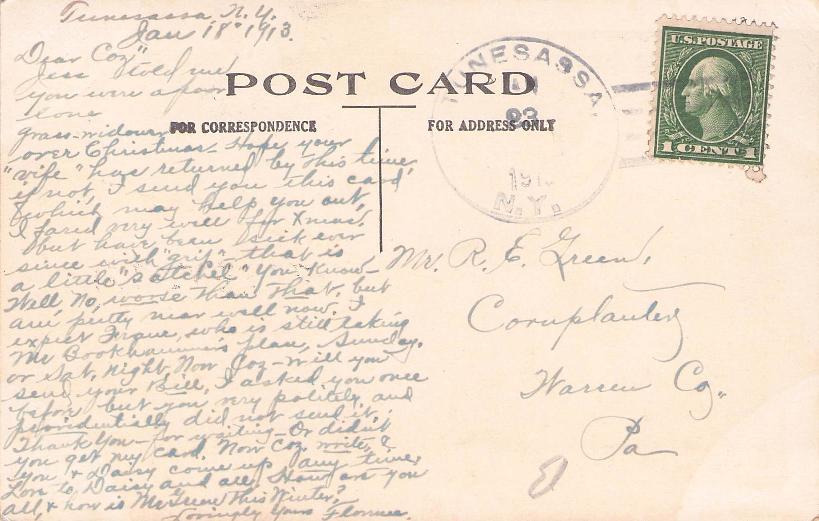 Tunesassa N.Y.
Jan 18" 1913.
Dear Coz"
Jess told me
you were a poor
lone
grass-widower
over Christmas. Hope your
"wife" has returned by this time,
if not, I send you this card
which may help you out,
I fared very well for Xmas.
but have been sick ever
since with "grip" - that is
a little "satchel" you know -
Well No, worse than that, but
am pretty near well now. I
expect who is still taking
Mr. place, Sunday.
or Sat. night. Now Coz - Will you
send your Bill, I asked you once
before but you very politely and
providentially did not send it,
Thank you - for waiting - Or didn't
you get my card. Now Coz, write, &
you & Daisy come up any time,
Love to Daisy and all, How are you
all, & how is this Winter?
Lovingly Yours Florence.
POST CARD
FOR CORRESPONDENCE
FOR ADDRESS ONLY
TUNESASSA,
23
191
N.Y.
U.S. POSTAGE
1 CENT 1
Mr. R. E. Green,
Cornplanter,
Warren Co,,
Pa